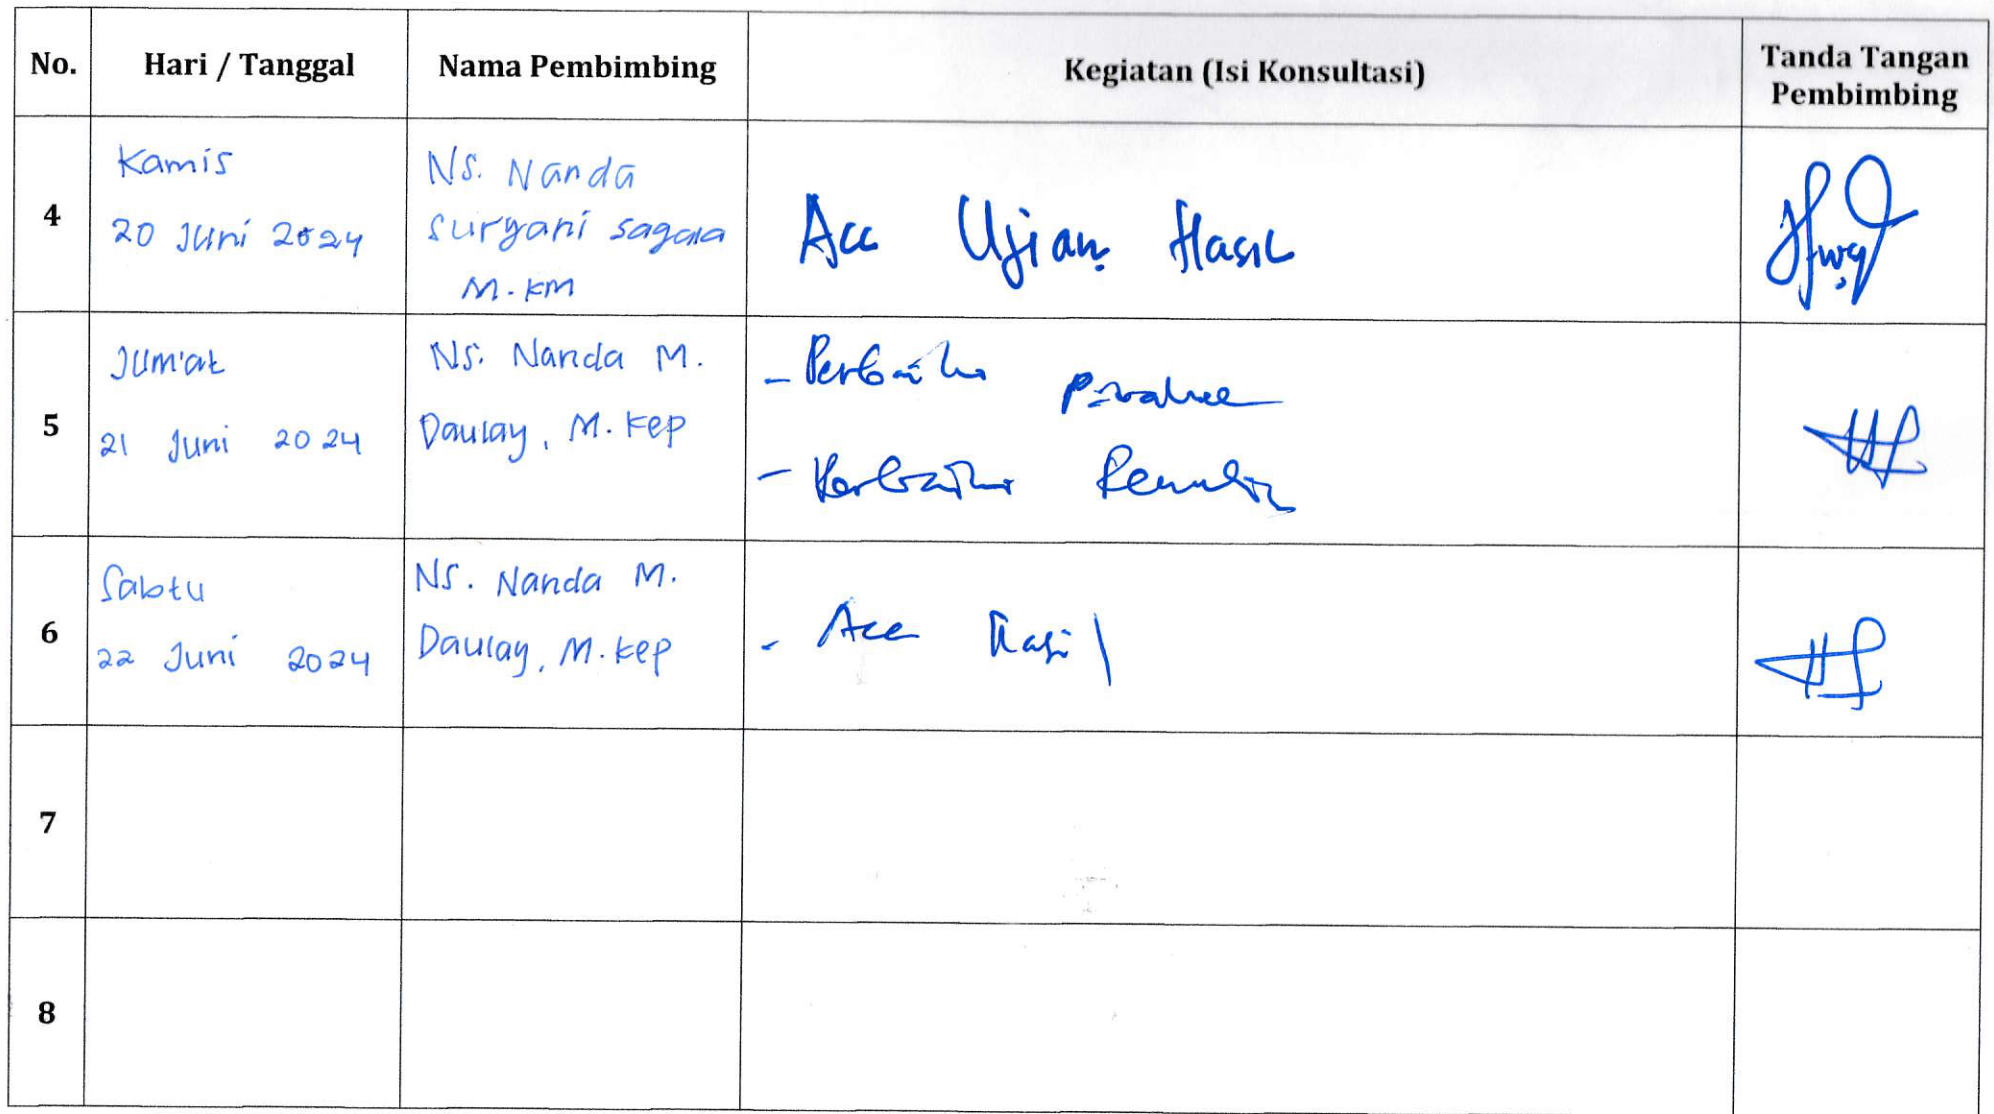 No.
Hari / Tanggal
Nama Pembimbing
Kegiatan (Isi Konsultasi)
Tanda Tangan
Pembimbing
4
Kamis
20 Juni 2024
Ns. Nanda
Suryani Sagala
M.KM
Acc Ujian Hasil
5
Jum'at
21 Juni 2024
Ns. Nanda M.
Daulay, M.Kep
- Perbaiki
- Perbaiki
6
Sabtu
22 Juni 2024
Ns. Nanda M.
Daulay, M.Kep
- Acc Hasil
7
8